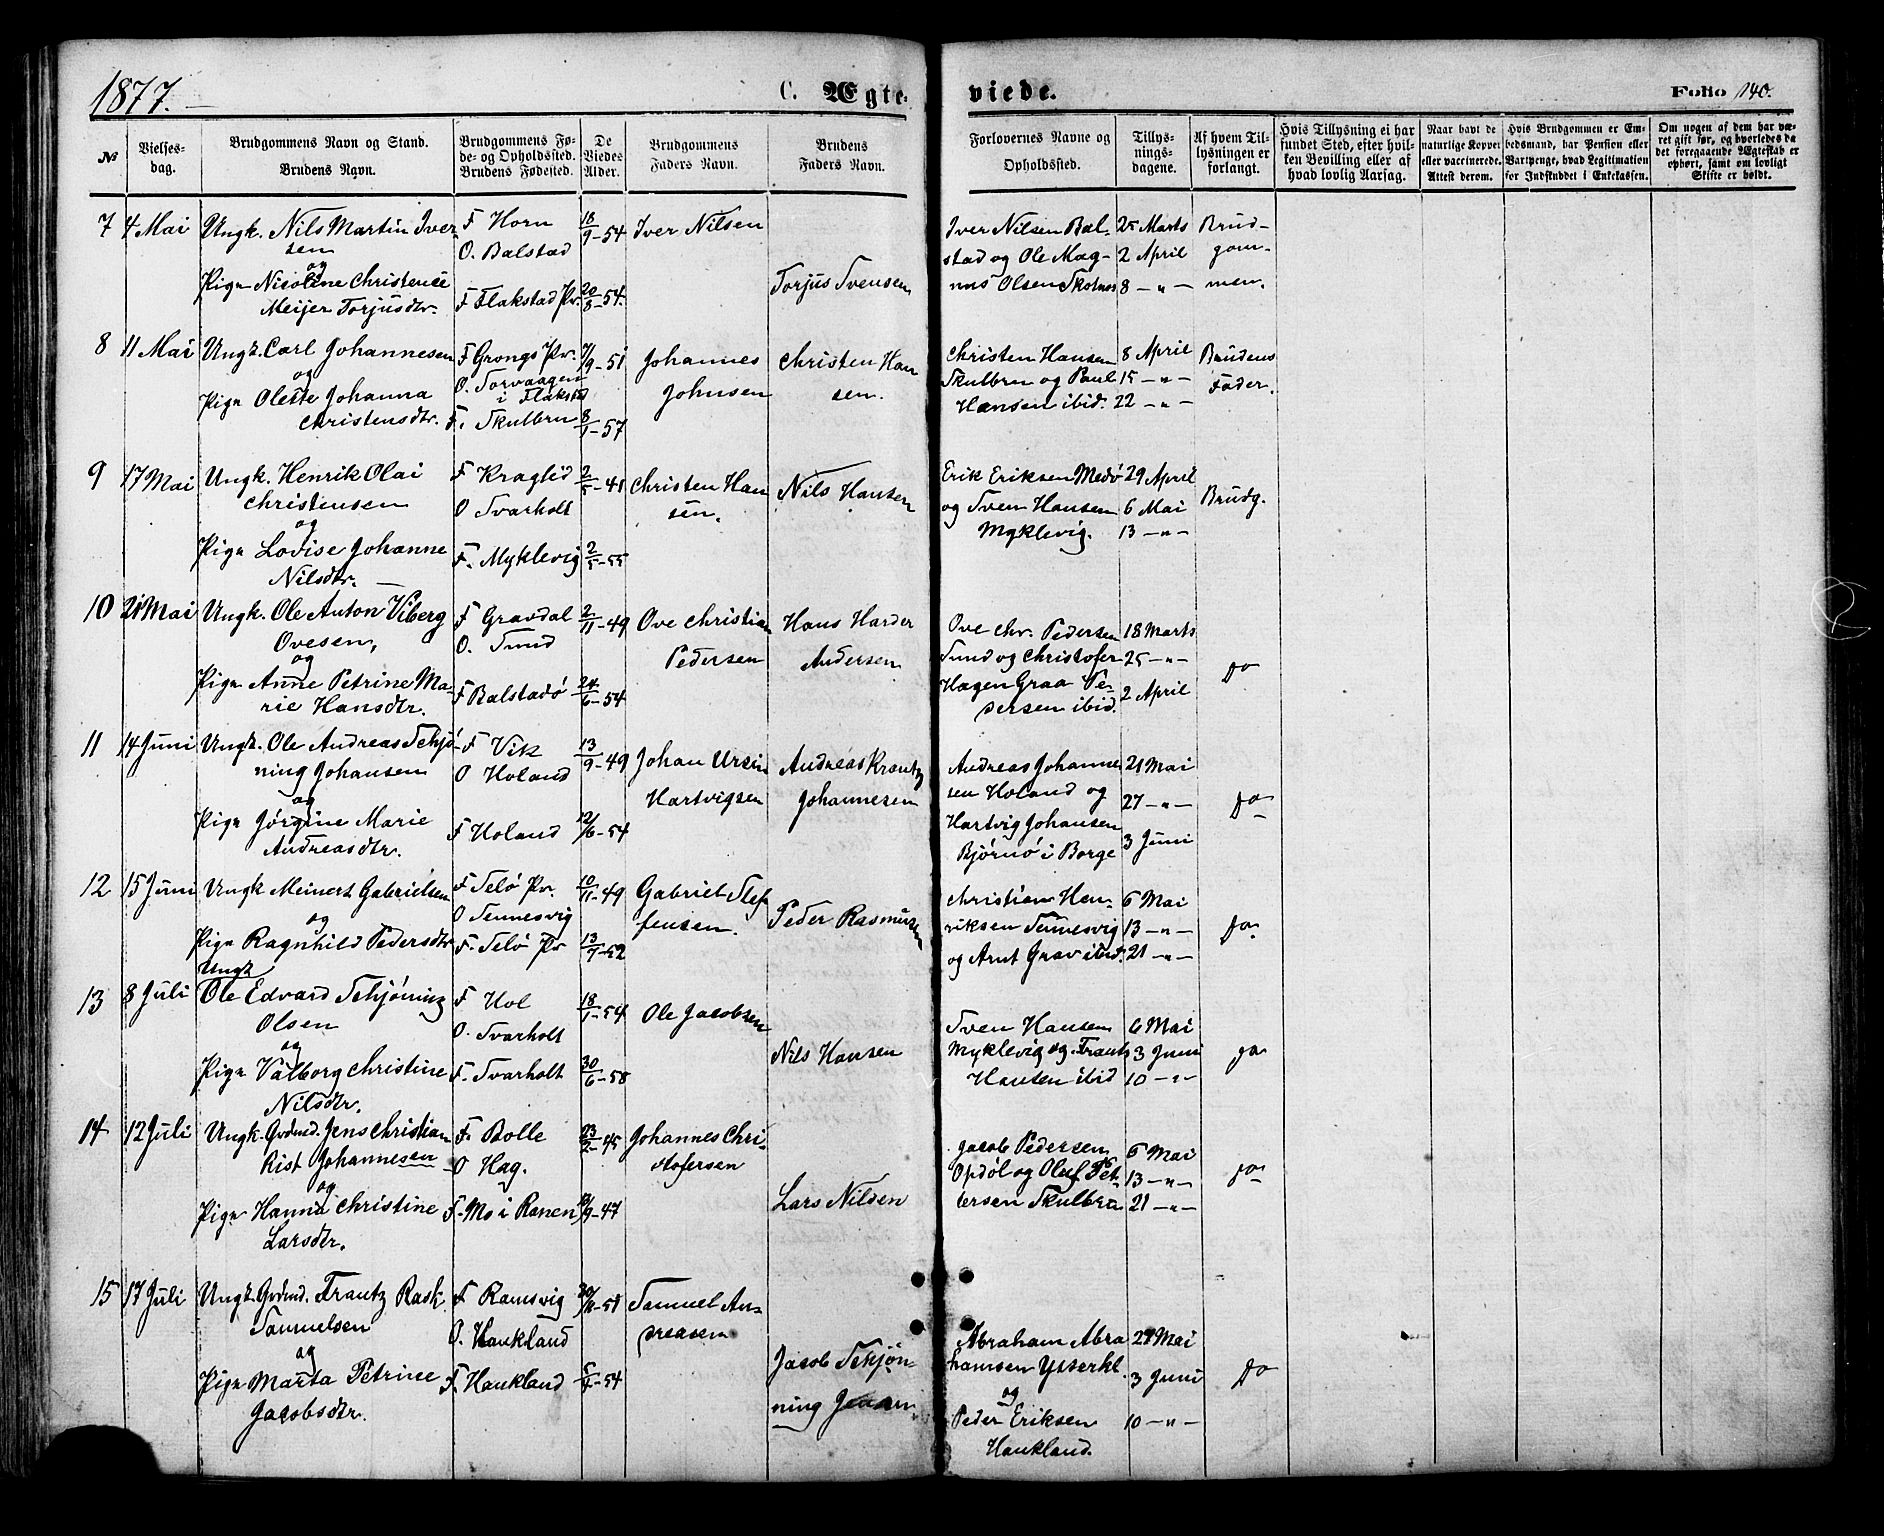 1877.
C. Ægte-
viede.
Folio 140.
№
Vielses-
dag.
Brudgommens Navn og Stand.
Brudens Navn.
Brudgommens Fø-
de- og Opholdssted.
Brudens Fødested.
De
Viedes
Alder.
Brudgommens
Faders Navn.
Brudens
Faders Navn.
Forlovernes Navne og
Opholdssted.
Tillys-
nings-
dagene.
Af hvem Til-
lysningen er
forlangt.
Hvis Tillysning ei har
fundet Sted, efter hvil-
ken Bevilling eller af
hvad lovlig Aarsag.
Naar havt de
naturlige Kopper
eller vaccinerede.
Attest derom.
Hvis Brudgommen er Em-
bedsmand, har Pension eller
Vartpenge, hvad Legitimation
for Indskuddet i Enkekassen.
Om nogen af dem har væ-
ret gift før, og hvorledes da
det foregaaende Ægteskab er
ophørt, samt om lovligt
Skifte er holdt.
7
4 Mai
Ungk. Nils Martin Iver-
sen
og
Pige Nicoline Christence
Meijer Torjusdtr.
F Horn
O. Balstad
F Flakstad Pr.
18/9-54
20/8-54.
Iver Nilsen
Torjus Svensen
Iver Nilsen Bal-
stad og Ole Mag-
nus Olsen Skotnes
25 Marts
2 April
8 - " -
Brud-
gom-
men.
8
11 Mai
Ungk. Carl Johannesen
og
Pige Olette Johanna
Christensdtr.
F Grongs Pr.
O. Sorvaagen
i Flakstd
F. Skulbru
7/9-51
8/1-57
Johannes
Johnsen
Christen Han
sen.
Christen Hansen
Skulbru og Paul
Hansen ibid.
8 April
15 - " -
22 - " -
Brudens
Fader.
9
17 Mai
Ungk. Henrik Olai
Christensen
og
Pige Lovise Johanne
Nilsdtr. -
F Kraglid
O Svarholt
F. Myklevig
2/5-41
2/5-55
Christen Han
sen.
Nils Hansen
Erik Eriksen Medø
og Sven Hansen
Myklevig.
29 April
6 Mai
13 - " -
Brudg.
10
21 Mai
Ungk. Ole Anton Viberg
Ovesen,
og
Pige Anne Petrine Ma-
rie Hansdtr.
F Gravdal
O. Sund
F Balstadø
2/11-49
24/6-54
Ove Christian
Pedersen
Hans Harder
Andersen
Ove Chr. Pedersen
Sund og Christofer
Hagen Graa Pe-
dersen ibid.
18 Marts
25 - " -
2 April
do
11
14 Juni
Ungk. Ole Andreas Schjø-
ning Johansen
og
Pige Jørgine Marie
Andreasdtr.
F Vik
O Holand
F Holand
13/9-49
12/6-54
Johan Ursin
Hartvigsen
Andreas Krantz
Johannesen
Andreas Johanne
sen Holand og
Hartvig Johansen
Bjørnø i Borge
21 Mai
27 - " -
3 Juni
do
12
15 Juni
Ungk Meinert Gabrielsen
og
Pige Ragnhild Pedersdtr
F Selø Pr.
O Sennesvig
F. Selø Pr
10/11-49
13/7-52
Gabriel Stef
fensen.
Peder Rasmusen
Christian Hen-
riksen Sennesvig
og Arnt Grav ibid.
6 Mai
13 - " -
21 - " -
do.
13
8 Juli
Ungk
Ole Edvard Schjøning
Olsen
og
Pige Valborg Christine
Nilsdtr.
F Hol
O. Svarholt
F. Svarholt
18/1-54
30/6-58
Ole Jacobsen
Nils Hansen
Sven Hansen
Myklevig og Frantz
Hansen ibid
6 Mai
3 Juni
10 - " -
do
14
12 Juli
Ungk. Grdmd. Jens Christian
Rist Johannesen
og
Pige Hanna Christine
Larsdtr.
F. Bolle
O Hag.
F. Mo i Ranen
23/2-45
/9-47
Johannes Chri-
stofersen
Lars Nilsen
Jacob Pedersen
Opdøl og Oluf Pet-
tersen Skulbru
6 Mai
13 - " -
21 - " -
do
15
17 Juli
Ungk. Grdmd. Frantz Rask
Samuelsen
og
Pige Marta Petrine
Jacobsdtr.
F Ramsvig
O. Haukland
F. Haukland
-51
-54
Samuel An-
dreasen
Jacob Schjøn-
ning Jensen
Abraham Abra
hamsen Ytterkl.
og
Peder Eriksen
Haukland.
27 Mai
3 Juni
10 - " -
do